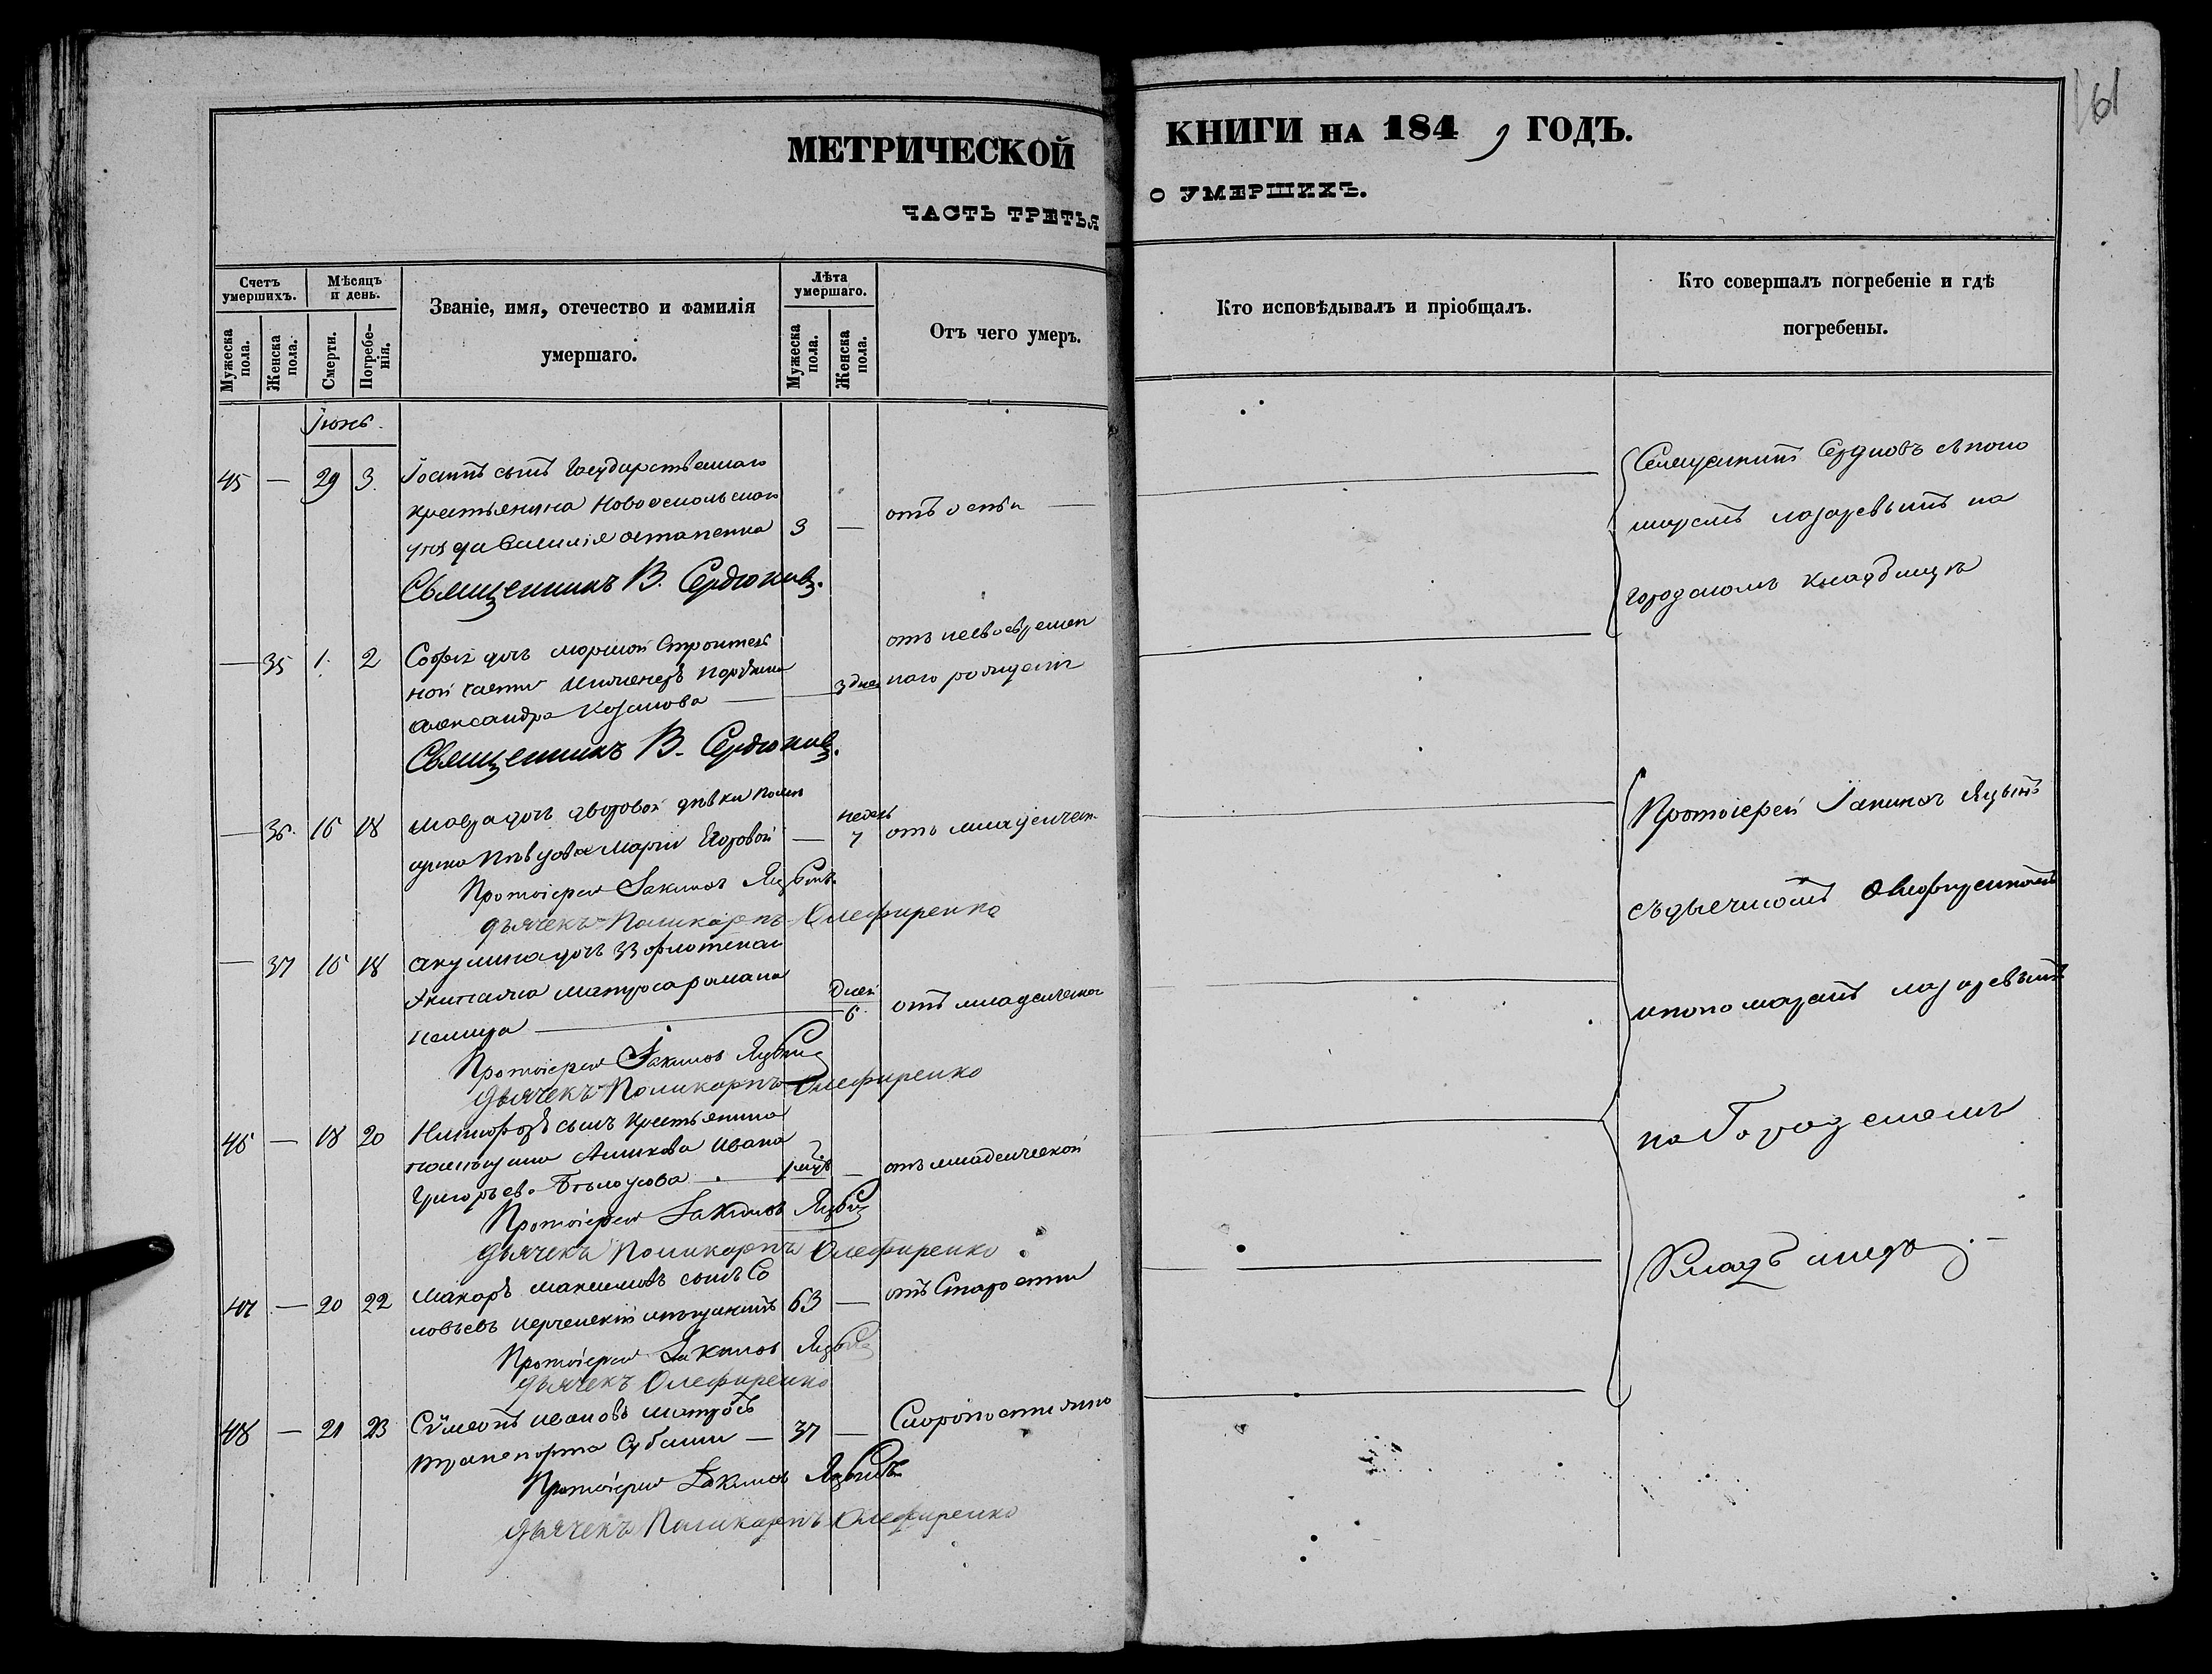 МЕТРИЧЕСКОЙ КНИГИ НА 1849 ГОДЪ.
ЧАСТЬ ТРЕТЬЯ О УМЕРШИХЪ.
161
Счетъ умершихъ.
Мужеска пола.
Женска пола.
Мѣсяцъ и день.
Смерти.
Погребенія.
Званіе, имя, отечество и фамилія
умершаго.
Лѣта умершаго.
Мужеска пола.
Женска пола.
Отъ чего умеръ.
Кто исповѣдывалъ и пріобщалъ.
Кто совершалъ погребеніе и гдѣ
погребены.
Іюнь.
45 — 29 3. сынъ Государственнаго
крестьянина Новооскольскаго
уѣзда Василія Остапенка 3 — отъ оспы —
Священникъ В. Сердюковъ.
Священникъ Сердюковъ съ поно
маремъ Лазаревымъ на
городскомъ кладбищѣ
— 35 1. 2 Софія дочь морской Строитель
ной части Инженеръ
Александра — 3 дней отъ несвоевремен
наго рожденія
Священникъ В. Сердюковъ.
— 36. 16 18 Мавра дочь дворовой дѣвки помѣ
щика Маріи Егоровой — недель 7 отъ младенческ.
Протоіерей Іакимъ
Дьячекъ Поликарпъ Олефиренко
— 37 16 18 Акулина дочь 33 флотскаго
Экипажа матроса Романа
— Дней 6. отъ младенческой
Протоіерей Іакимъ
Дьячекъ Поликарпъ Олефиренко
46 — 18 20 Никифоръ сынъ крестьянина
помѣщика Ивана
Григорьева Бѣлоусова — — отъ младенческой
Протоіерей Іакимъ
Дьячекъ Поликарпъ Олефиренко
47 — 20 22 Макаръ Максимовъ сынъ Со
ловьевъ Керченскій мѣщанинъ 63 — отъ Старости
Протоіерей Іакимъ
Дьячекъ Олефиренко
48 — 21 23 Сѵмеонъ Ивановъ матросъ
транспорта Субаши — 37 — Скоропостижно
Протоіерей Іакимъ
Дьячекъ Поликарпъ Олефиренко
Протоіерей Іакимъ
съ дьячкомъ Олефиренкомъ
и пономаремъ Лазаревымъ
на Городскомъ
Кладбищѣ. —